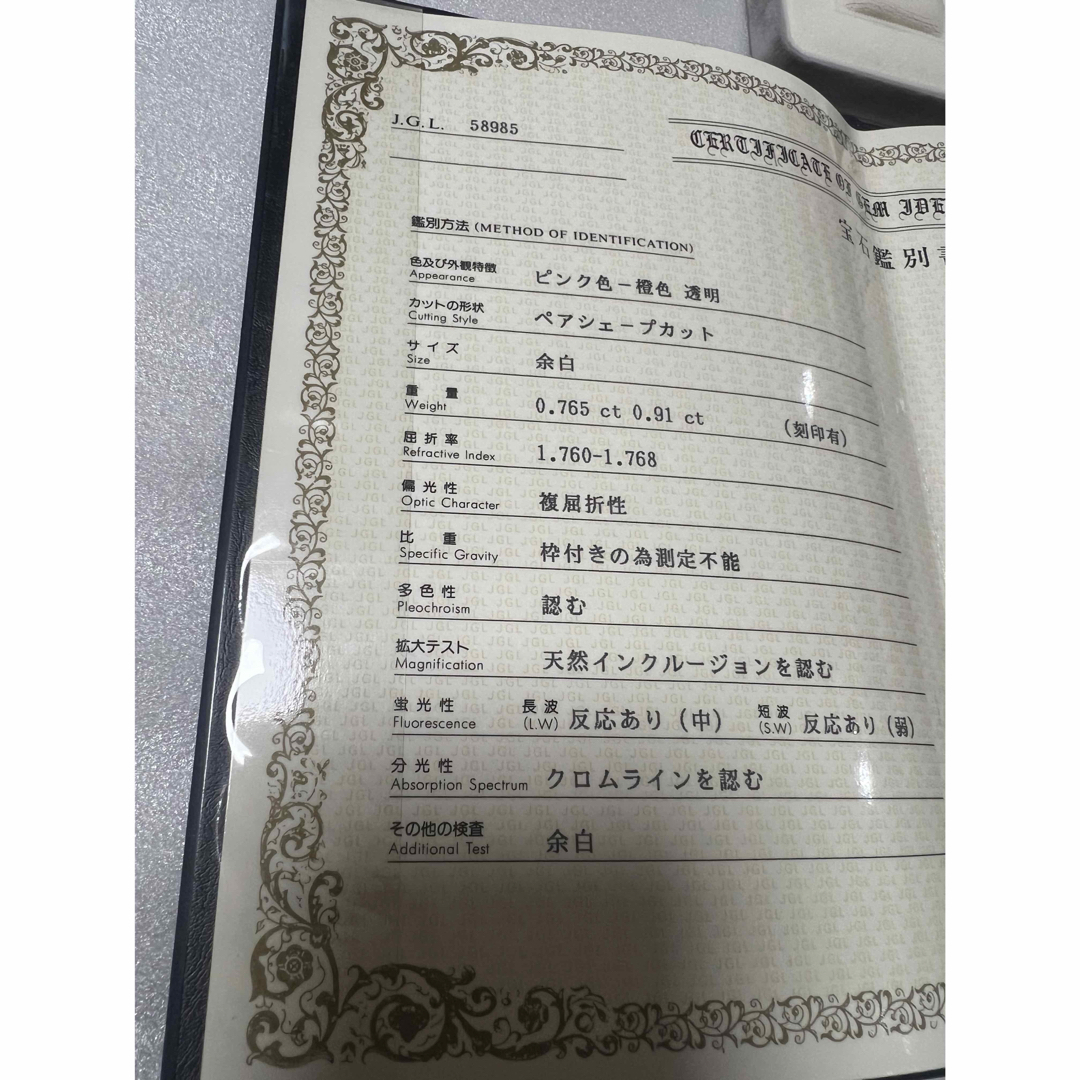 J.G.L. 58985
CERTIFICATE OF GEM
宝石鑑別
鑑別方法 (METHOD OF IDENTIFICATION)
色及び外観特徴 ピンク色－橙色 透明
Appearance
カットの形状 ペアシェープカット
Cutting Style
サイズ 余白
Size
重量 0.765 ct 0.91 ct (刻印有)
Weight
屈折率 1.760-1.768
Refractive Index
偏光性 複屈折性
Optic Character
比重 枠付きの為測定不能
Specific Gravity
多色性 認む
Pleochroism
拡大テスト 天然インクルージョンを認む
Magnification
蛍光性 長波 反応あり (中) 短波 反応あり (弱)
Fluorescence (L.W) (S.W)
分光性 クロムラインを認む
Absorption Spectrum
その他の検査 余白
Additional Test